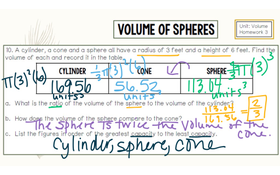 VOLUME OF SPHERES
Unit: Volume
Homework 3
10. A cylinder, a cone and a sphere all have a radius of 3 feet and a height of 6 feet. Find the
volume of each and record it in the table.
CYLINDER CONE SPHERE
π(3)²(6) ⅓π(3)²(6) 4/3π(3)³
169.56 units³ 56.52 units³ 113.04 units³
a. What is the ratio of the volume of the sphere to the volume of the cylinder?
113.04/169.56 = 2/3
b. How does the volume of the sphere compare to the cone?
The sphere is twice the volume of the cone.
c. List the figures in order of the greatest capacity to the least capacity.
cylinder, sphere, cone